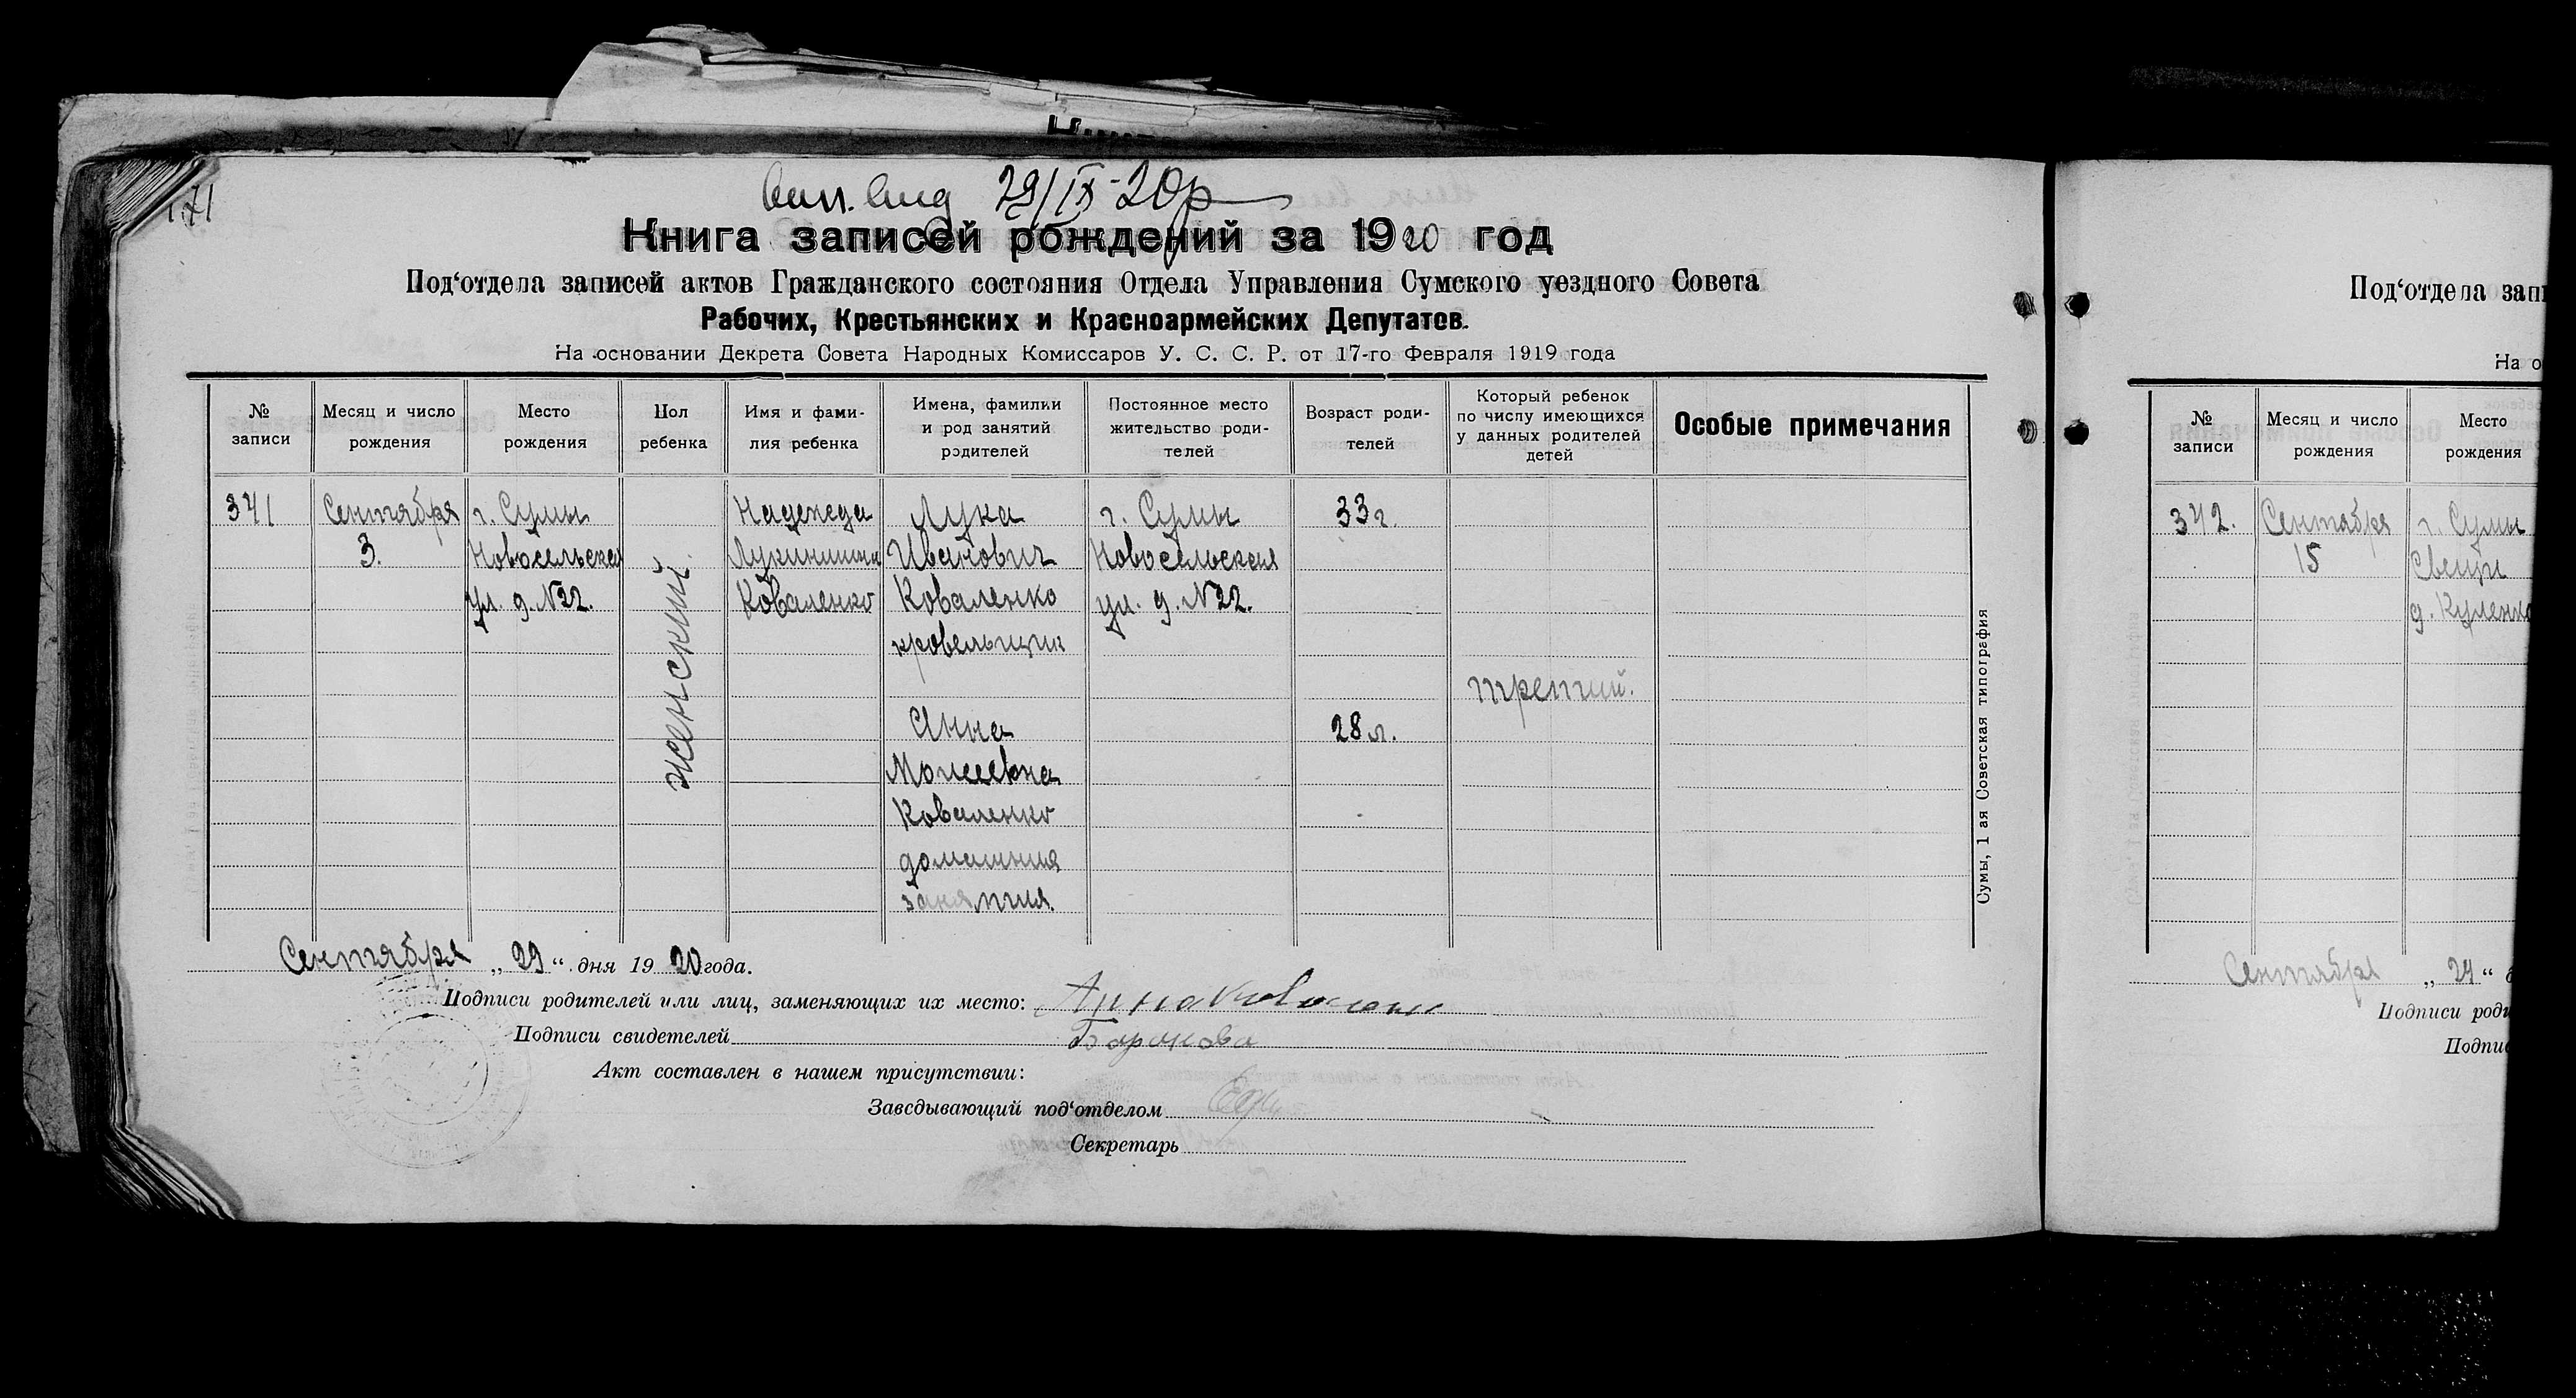 171
29/IX-20р
Книга записей рождений за 1920 год
Под‘отдела записей актов Гражданского состояния Отдела Управления Сумского уездного Совета
Рабочих, Крестьянских и Красноармейских Депутатов.
На основании Декрета Совета Народных Комиссаров У. С. С. Р. от 17-го Февраля 1919 года
№ записи
Месяц и число рождения
Место рождения
Пол ребенка
Имя и фами-
лия ребенка
Имена, фамилии
и род занятий
родителей
Постоянное место
жительство роди-
телей
Возраст роди-
телей
Который ребенок
по числу имеющихся
у данных родителей
детей
Особые примечания
341
Сентября
3.
г. Сумы
Новосельская
ул. д. №22.
женский.
Надежда
Лукинишна
Коваленко
Лука
Иванович
Коваленко
кровельщик
Анна
Моисеевна
Коваленко
домашния
занятия.
г. Сумы
Новосельская
ул. д. №22.
33 г.
28 л.
третий.
Сумы, 1 ая Советская типография
Сентября „29“ дня 1920 года.
Подписи родителей или лиц, заменяющих их место: Анна
Подписи свидетелей
Акт составлен в нашем присутствии:
Заведывающий под‘отделом
Секретарь
Под‘отдела зап
На о
№ записи
Месяц и число рождения
Место рождения
342.
Сентября
15
г. Сумы
д.
Сентября „24“
Подписи роди
Подпис